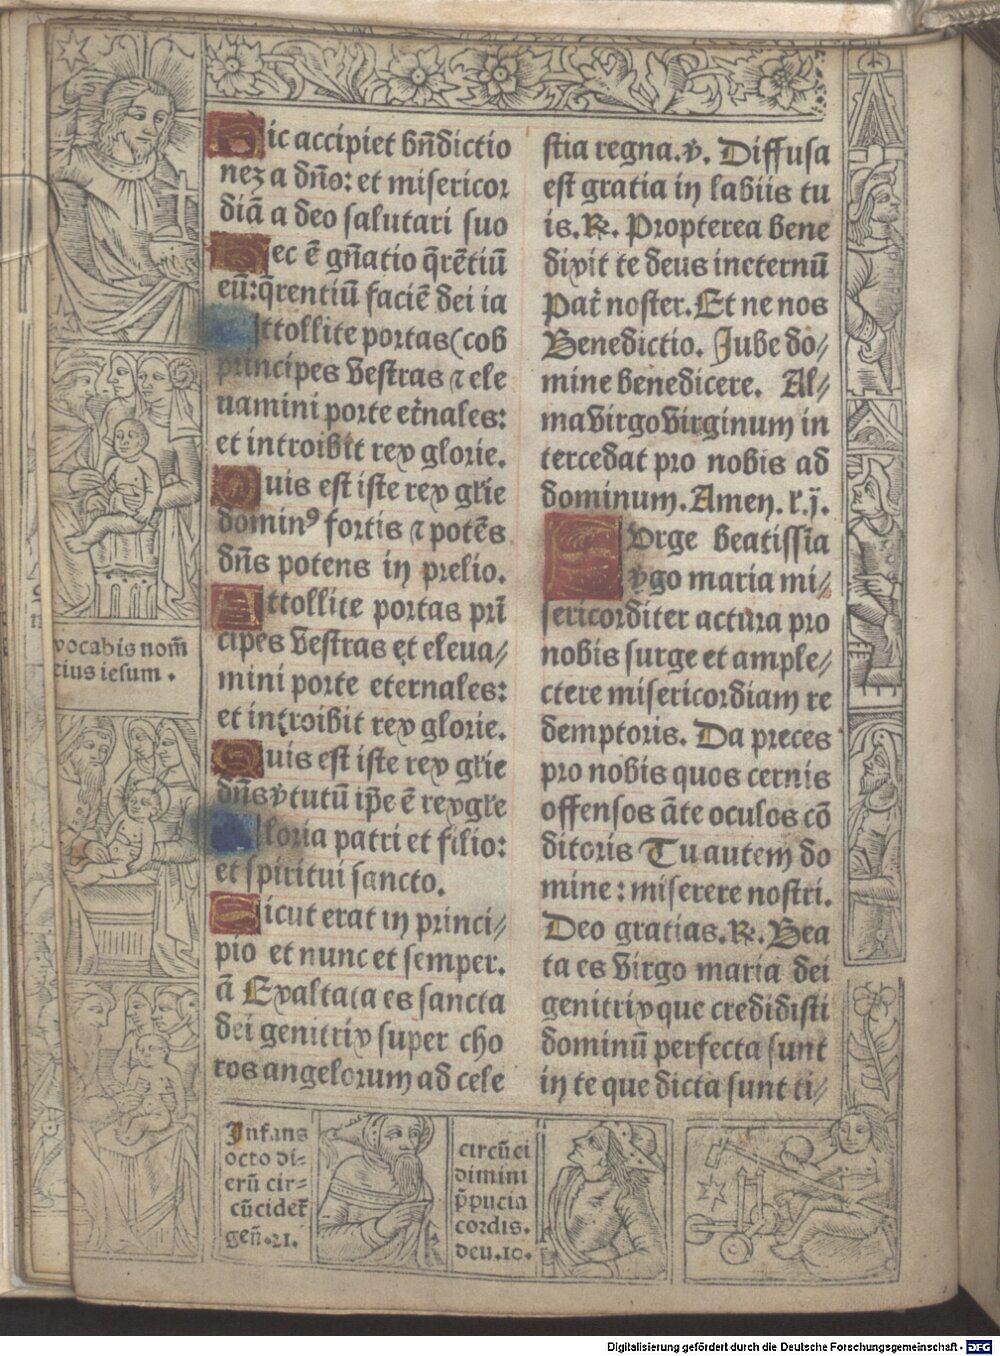 Hic accipiet bn̄dictio
neʒ a dn̄o: et misericor
diā a deo salutari suo
Hec ē gn̄atio q̄rētiū
eū: q̄rentiū faciē dei ia
Attollite portas (cob
principes vestras ⁊ ele
uamini porte et̄nales:
et introibit rex glorie.
Quis est iste rex gl̄ie
dominꝰ fortis ⁊ potēs
dn̄s potens in prelio.
Attollite portas prī
cipes vestras et eleua/
mini porte eternales:
et introibit rex glorie.
Quis est iste rex gl̄ie
dn̄s v̄tutū ip̄e ē rex gl̄e
Gloria patri et filio:
et spiritui sancto.
Sicut erat in princi/
pio et nunc et semper.
ā Exaltata es sancta
dei genitrix super cho
ros angelorum ad cele
stia regna. ℣. Diffusa
est gratia in labiis tu
is. ℟. Propterea bene
dixit te deus in eternū
Pat̄ noster. Et ne nos
Benedictio. Jube do/
mine benedicere. Al/
ma virgo virginum in
tercedat pro nobis ad
dominum. Amen. l. j̄.
Surge beatissia
v̄go maria mi/
sericorditer actura pro
nobis surge et ample/
ctere misericordiam re
demptoris. Da preces
pro nobis quos cernis
offensos āte oculos cō
ditoris Tu autem do
mine: miserere nostri.
Deo gratias. ℟. Bea
ta es virgo maria dei
genitrix que credidisti
dominū perfecta sunt
in te que dicta sunt ti/
vocabis nom̄
eius iesum.
Infans
octo di-
erū cir-
cūcidet̄
gen̄. 21.
circūci
dimini
p̄pucia
cordis.
deu. 10.
Digitalisierung gefördert durch die Deutsche Forschungsgemeinschaft - DFG